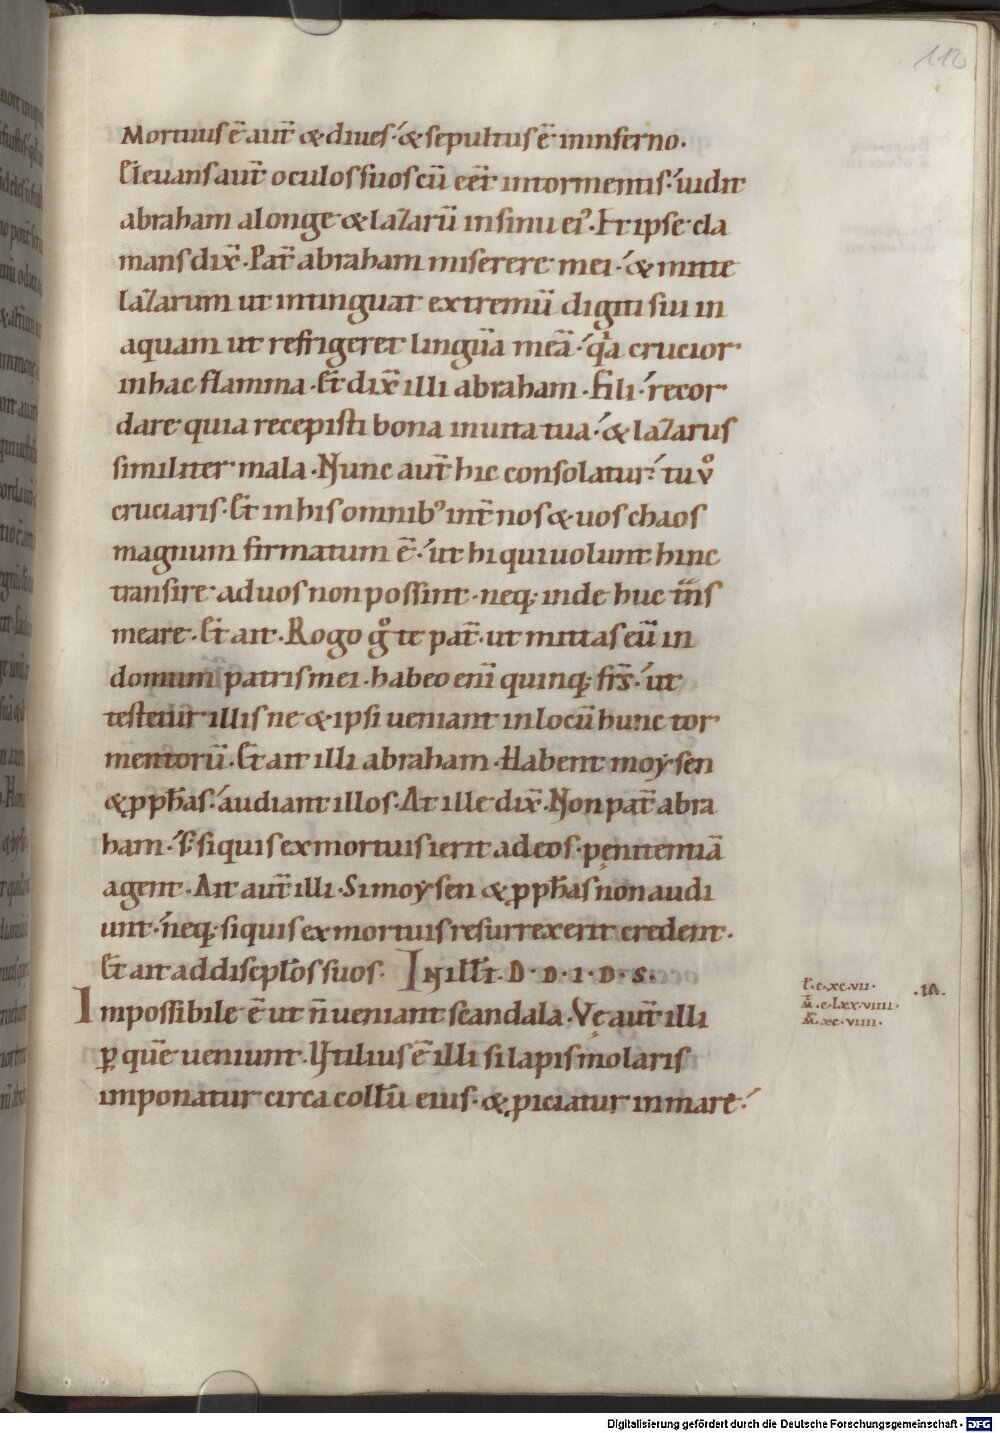 112
Mortuus ē aut̄ & diues. & sepultus ē in inferno.
Eleuans aut̄ oculos suos cū eēt in tormentis. uidit
abraham alonge & lazarū in sinu ei᾿. Et ipse cla
mans dix̄. Pat̄ abraham miserere mei. & mitte
lazarum ut intinguat extremū digiti sui in
aquam ut refrigeret linguā meā. qͥa crucior
in hac flamma. Et dix̄ illi abraham. Fili. recor
dare quia recepisti bona in uita tua. & lazarus
similiter mala. Nunc aut̄ hic consolatur. tu v̊
cruciaris. Et in his omnib᾿ int̄ nos & uos chaos
magnum firmatum ē. ut hi qui uolunt hinc
transire ad uos non possint. neq; inde huc t̄ns
meare. Et ait. Rogo g̊ te pat̄. ut mittas eū in
domum patris mei. habeo enī quinq; fr̄s. ut
testetur illis ne & ipsi ueniant in locū hunc tor
mentorū. Et ait illi abraham. Habent moysen
& ꝓph̄as. audiant illos. At ille dix̄. Non pat̄ abra
ham. s; si quis ex mortuis ierit ad eos. pęnitentiā
agent. Ait aut̄ illi. Si moysen & ꝓph̄as non audi
unt. neq; si quis ex mortuis resurrexerit credent.
Et ait ad discipl̄os suos. In ill̄ t̄. D. D. I. D. S.
Impossibile ē ut n̄ ueniant scandala. Vę aut̄ illi
ꝑ quē ueniunt. Utilius ē illi si lapis molaris
imponatur circa collū eius. & ꝓiciatur in mare.
L̄. c. xc. vii. .IA.
M̄. c. Lxx. viiii.
M̄. xc. viiii.
Digitalisierung gefördert durch die Deutsche Forschungsgemeinschaft - DFG